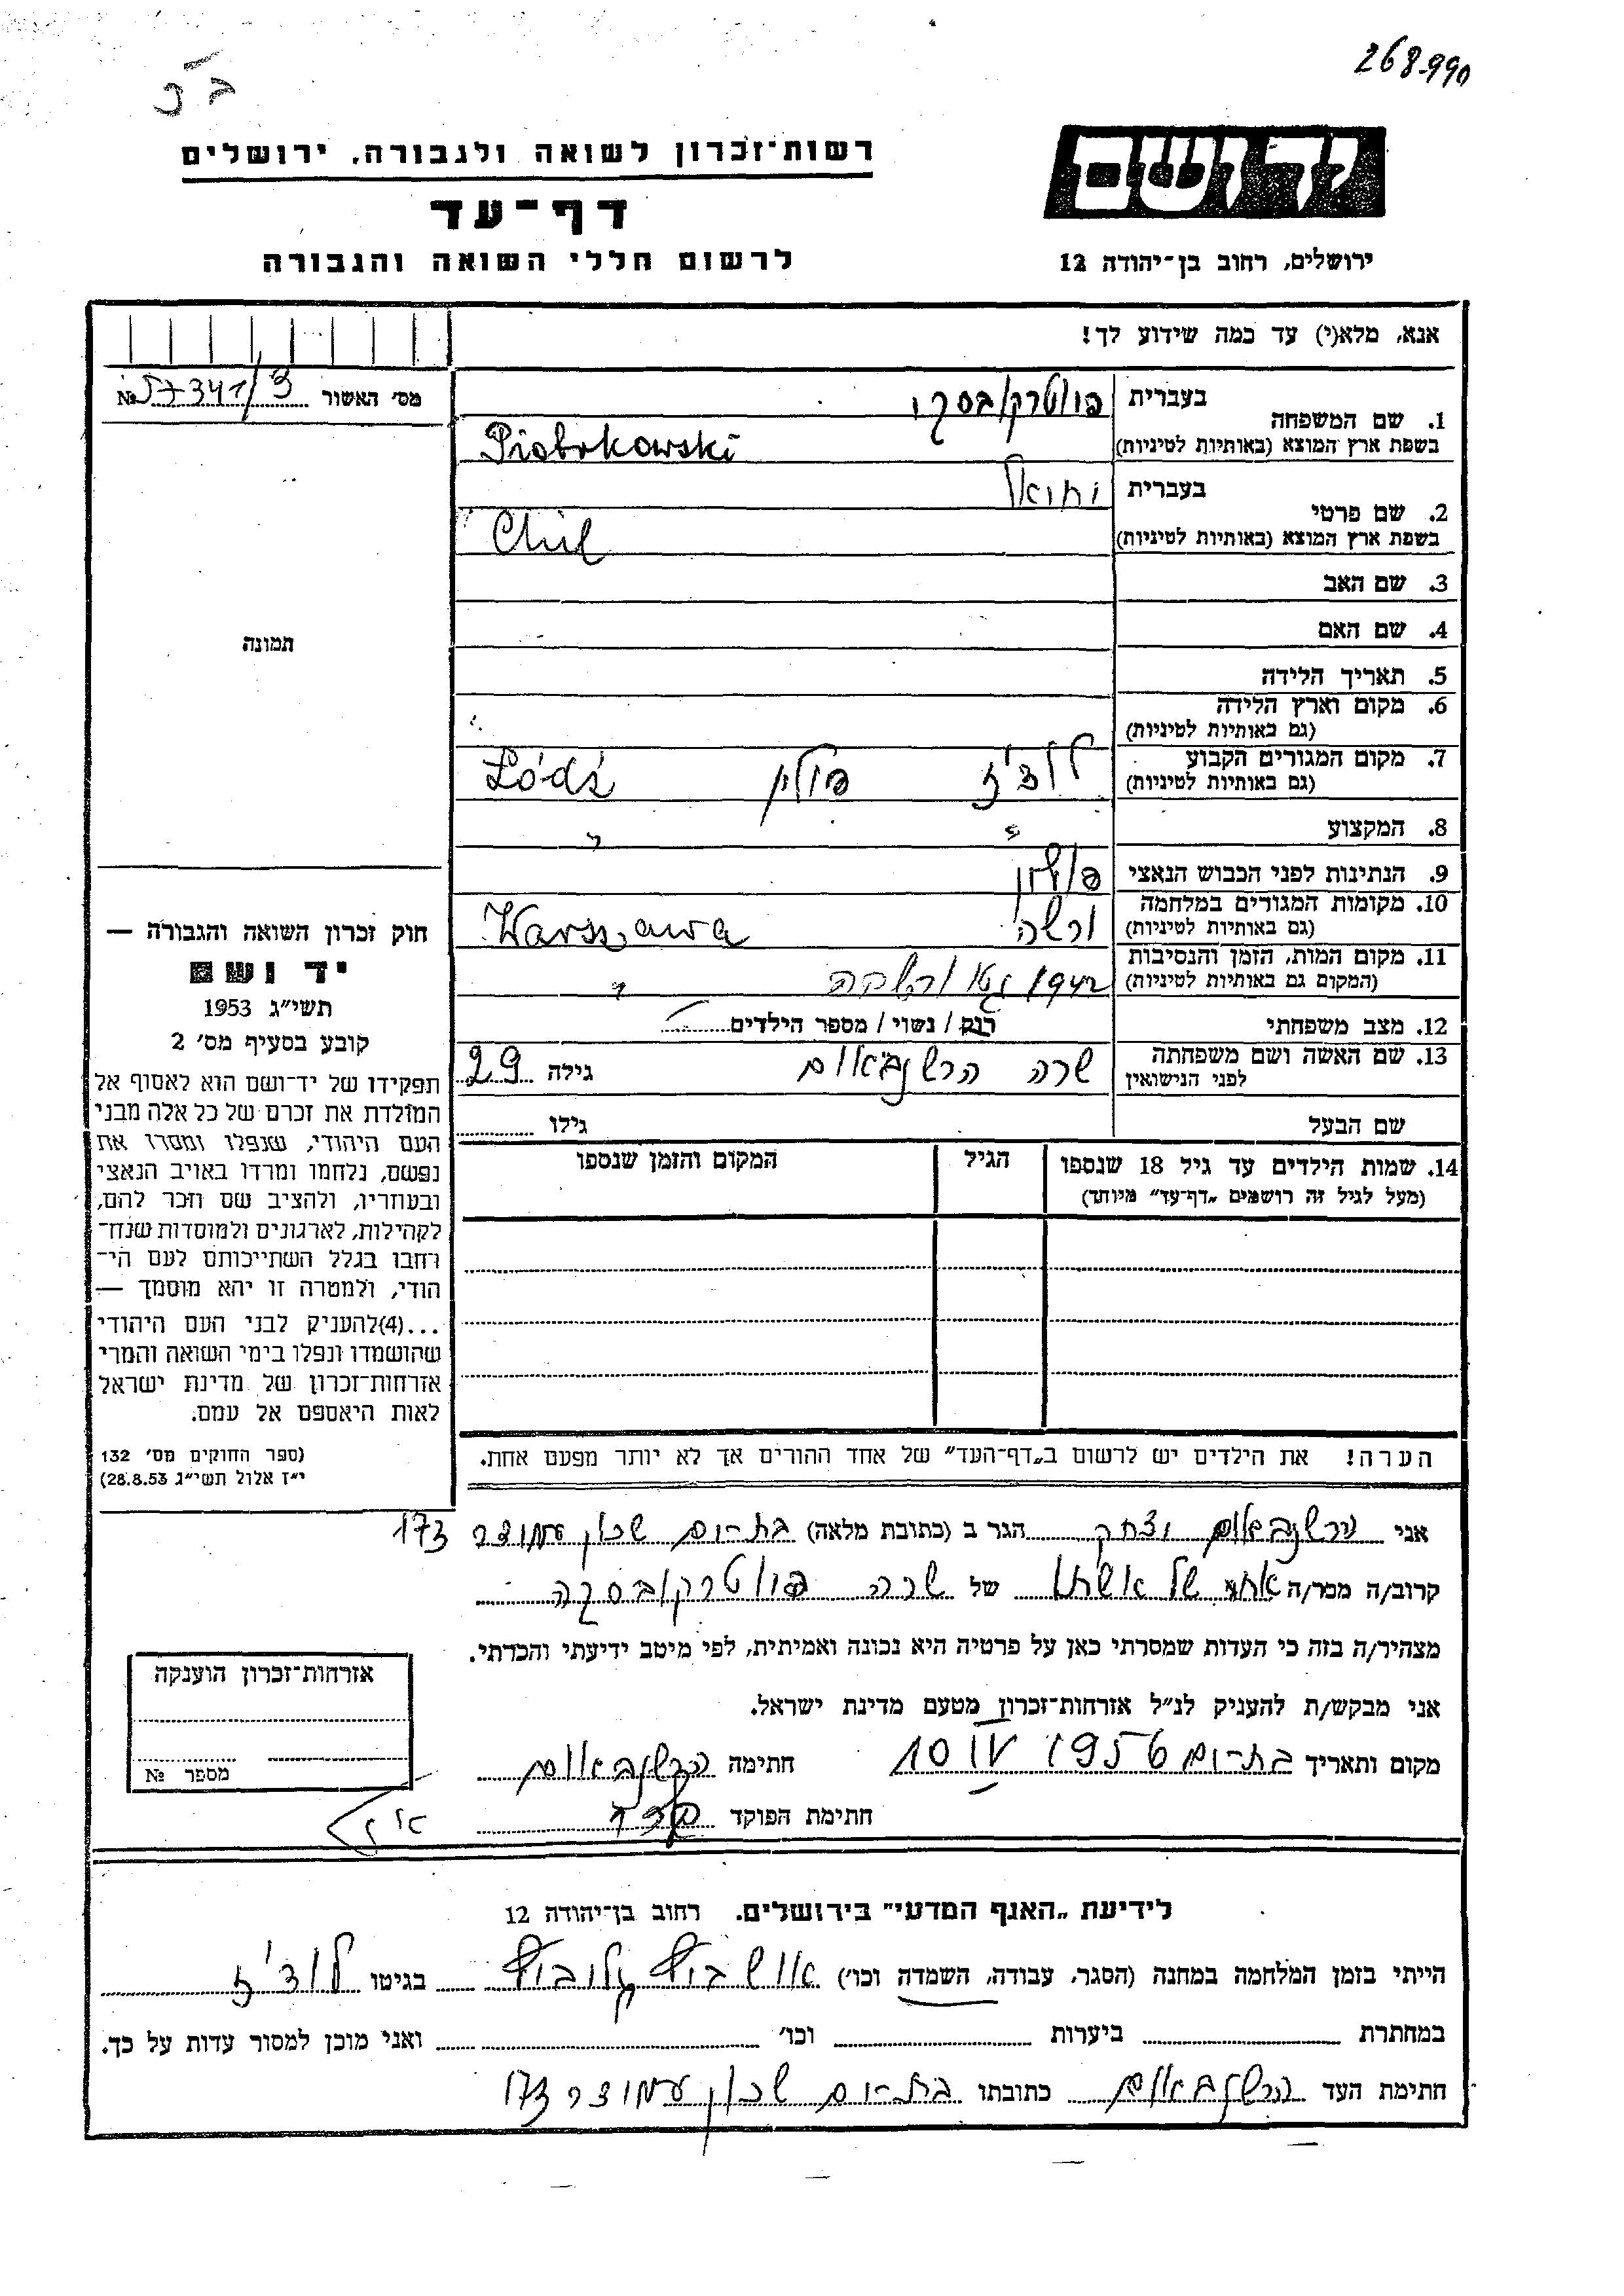 268990
ב צ
יד ושם
ירושלים, רחוב בן־יהודה 12
רשות־זכרון לשואה ולגבורה, ירושלים
דף־עד
לרשום חללי השואה והגבורה
אנא, מלא(י) עד כמה שידוע לך!
מס׳ האשור № 57341/3
1. שם המשפחה בעברית פיוטרקובסקי
בשפת ארץ המוצא (באותיות לטיניות) Piotrkowski
2. שם פרטי בעברית יחיאל
בשפת ארץ המוצא (באותיות לטיניות) Chil
3. שם האב
4. שם האם
5. תאריך הלידה
6. מקום וארץ הלידה
(גם באותיות לטיניות)
7. מקום המגורים הקבוע לודז׳ פולין Łódź
(גם באותיות לטיניות)
8. המקצוע
9. הנתינות לפני הכבוש הנאצי פולין
10. מקומות המגורים במלחמה ורשה Warszawa
(גם באותיות לטיניות)
11. מקום המות, הזמן והנסיבות
(המקום גם באותיות לטיניות) 1942 גטו
12. מצב משפחתי רוק / נשוי / מספר הילדים
13. שם האשה ושם משפחתה שרה הרשנבאום גילה 29
לפני הנישואין
שם הבעל גילו
14. שמות הילדים עד גיל 18 שנספו הגיל המקום והזמן שנספו
(מעל לגיל זה רושמים „דף־עד״ מיוחד)
הערה! את הילדים יש לרשום ב„דף־העד״ של אחד ההורים אך לא יותר מפעם אחת.
תמונה
חוק זכרון השואה והגבורה —
יד ושם
תשי״ג 1953
קובע בסעיף מס׳ 2
תפקידו של יד־ושם הוא לאסוף אל
המולדת את זכרם של כל אלה מבני
העם היהודי, שנפלו ומסרו את
נפשם, נלחמו ומרדו באויב הנאצי
ובעוזריו, ולהציב שם וזכר להם,
לקהילות, לארגונים ולמוסדות שנח־
רחבו בגלל השתייכותם לעם הי־
הודי, ולמטרה זו יהא מוסמך —
...(4)להעניק לבני העם היהודי
שהושמדו ונפלו בימי השואה והמרי
אזרחות־זכרון של מדינת ישראל
לאות היאספם אל עמם.
(ספר החוקים מס׳ 132
י״ז אלול תשי״ג 28.8.53)
אני הרשנבאום יצחק הגר ב (כתובת מלאה) בת־ים שכון עמידר 173
קרוב/ה מכר/ה אחי של אשתו של שרה פיוטרקובסקה
מצהיר/ה בזה כי העדות שמסרתי כאן על פרטיה היא נכונה ואמיתית, לפי מיטב ידיעתי והכרתי.
אני מבקש/ת להעניק לנ״ל אזרחות־זכרון מטעם מדינת ישראל.
מקום ותאריך בת־ים 1956 IV 10 חתימה הרשנבאום
חתימת הפוקד
אזרחות־זכרון הוענקה
מספר №
לידיעת „האגף המדעי״ בירושלים. רחוב בן־יהודה 12
הייתי בזמן המלחמה במחנה (הסגר, עבודה, השמדה וכו׳) אושביץ בגיטו לודז׳
במחתרת ביערות וכו׳ ואני מוכן למסור עדות על כך.
חתימת העד הרשנבאום כתובתו בת־ים שכון עמידר 173